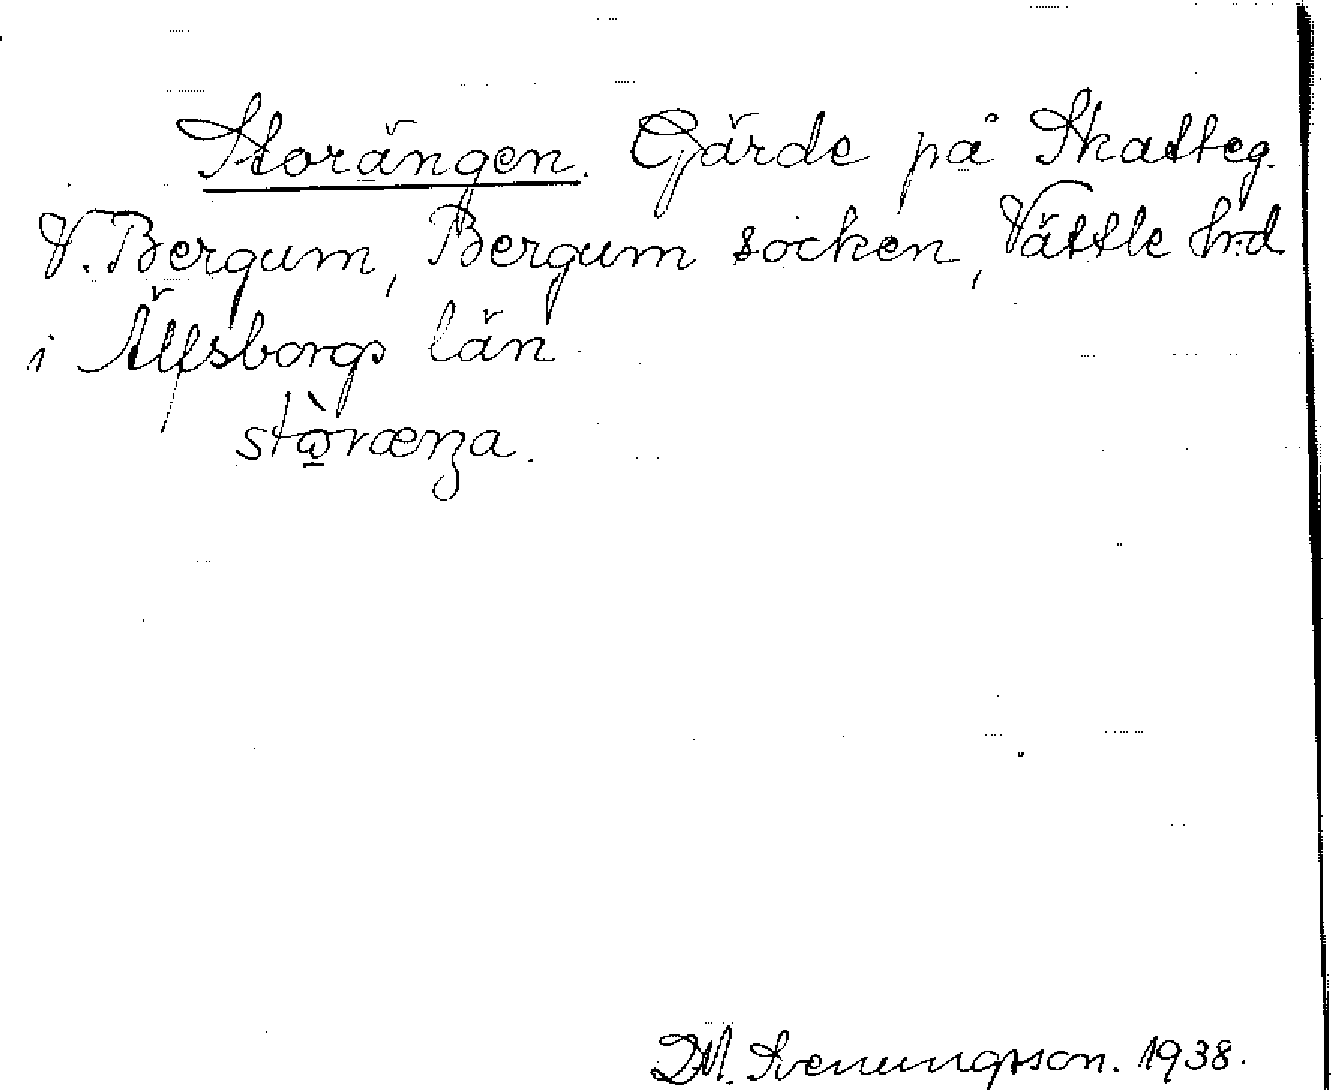 Storängen. Gärde på Skatteg.
V. Bergum, Bergum socken, Vättle hrd
i Älfsborgs län
stòræŋa.
D.M. Svenungsson. 1938.